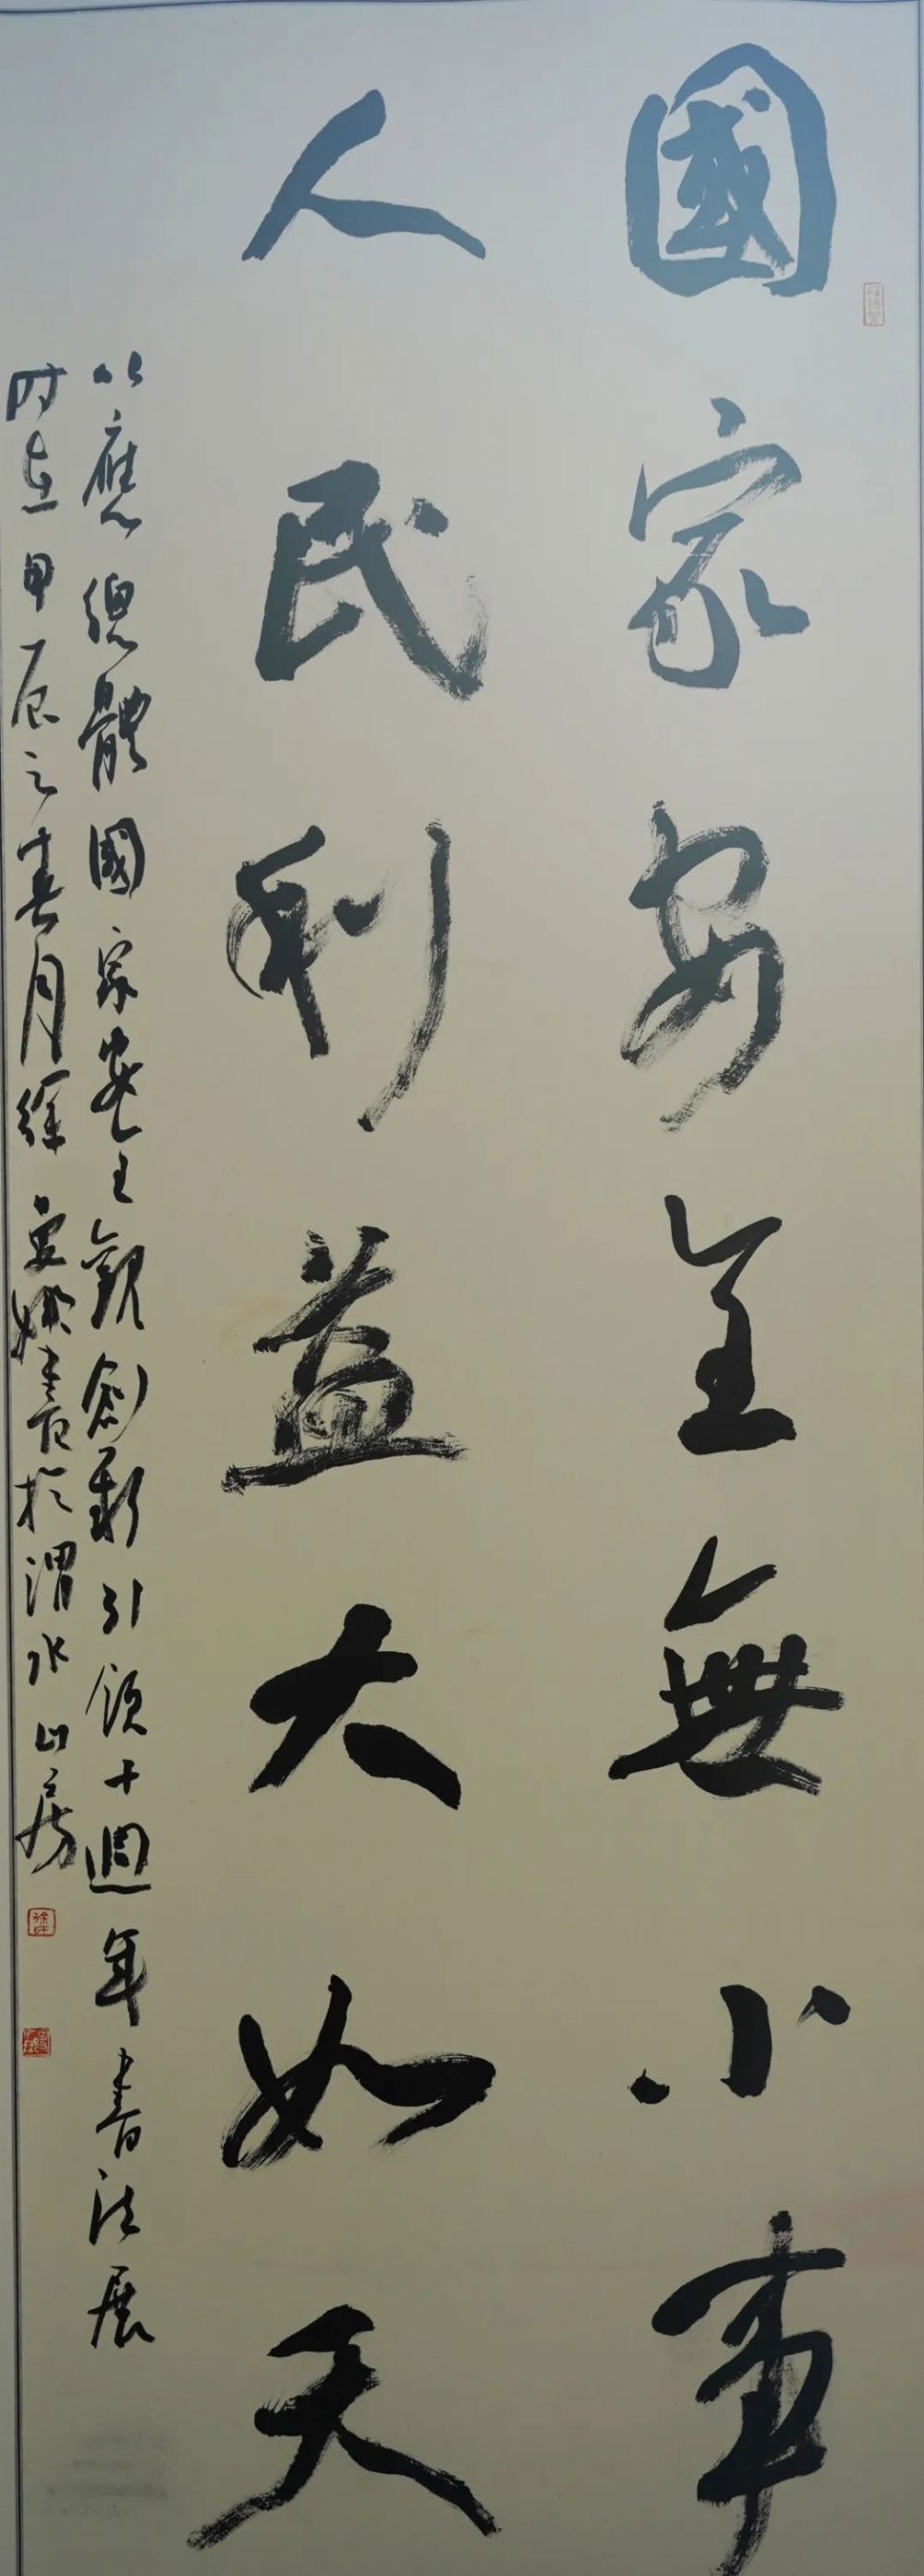 國家安全無小事
人民利益大如天
以應總體國家安全觀創新引領十週年書法展
時在甲辰之春月徐書於渭水山房